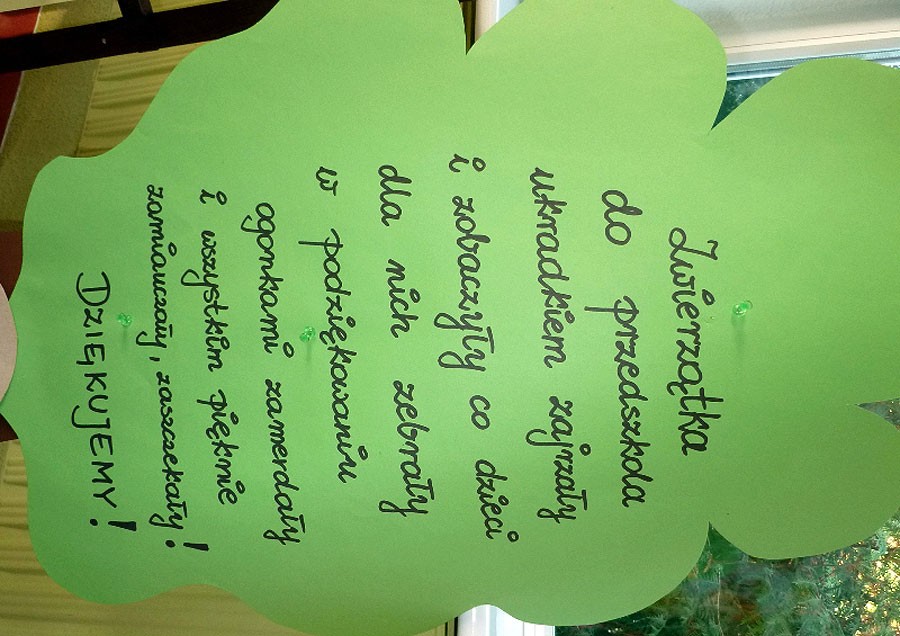 Zwierzątka
do przedszkola
ukradkiem zajrzały
i zobaczyły co dzieci
dla nich zebrały
w podziękowaniu
ogonkami zamerdały
i wszystkim pięknie
zamiauczały, zaszczekały!
DZIĘKUJEMY!